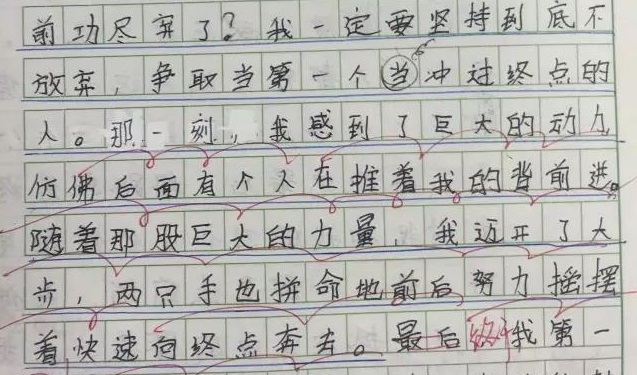 前功尽弃了？我一定要坚持到底不
放弃，争取当第一个当冲过终点的
人。那一刻，我感到了巨大的动力，
仿佛后面有个人在推着我的背前进。
随着那股巨大的力量，我迈开了大
步，两只手也拼命地前后努力摇摆
着快速向终点奔去。最后终于我第一